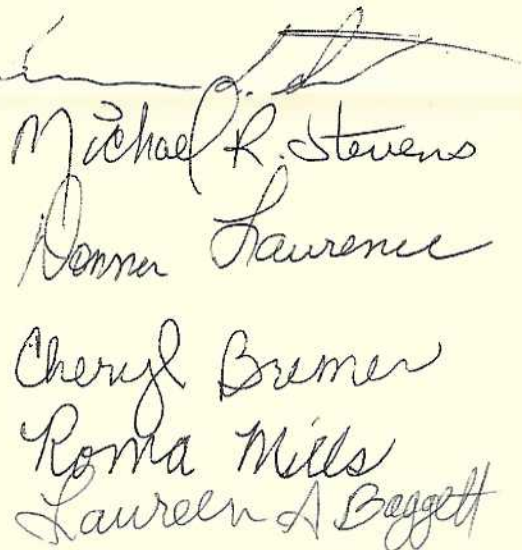 Michael R. Stevens
Donner Laurence
Cheryl Bremer
Roma Mills
Laureen A Baggett